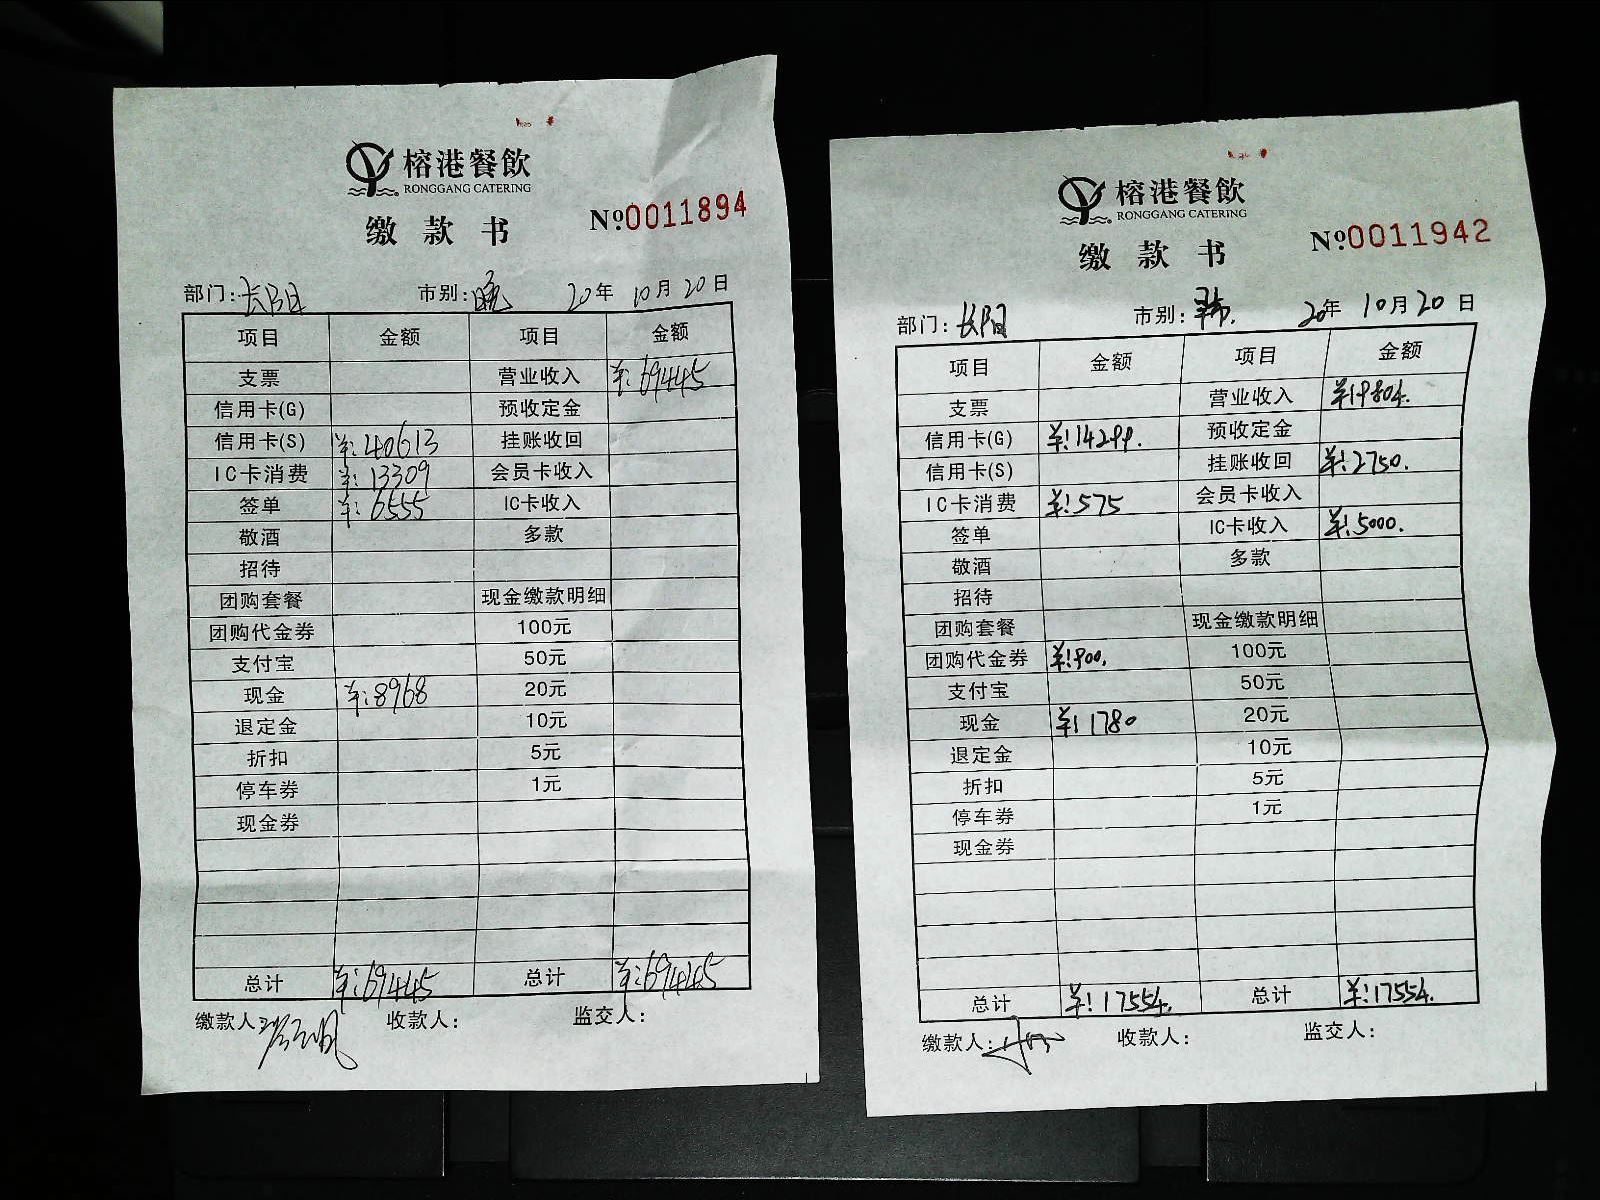 榕港餐飲
RONGGANG CATERING
缴款书
№.0011894
部门:长阳 市别:晚 20年 10月 20日
项目 金额 项目 金额
支票 营业收入 ¥:69445
信用卡(G) 预收定金
信用卡(S) ¥:40613 挂账收回
IC卡消费 ¥:13309 会员卡收入
签单 ¥:6555 IC卡收入
敬酒 多款
招待
团购套餐 现金缴款明细
团购代金券 100元
支付宝 50元
现金 ¥:8968 20元
退定金 10元
折扣 5元
停车券 1元
现金券
总计 ¥:69445 总计 ¥:69445
缴款人: 收款人: 监交人:
榕港餐飲
RONGGANG CATERING
缴款书
№0011942
部门:长阳 市别: 20年 10月20日
项目 金额 项目 金额
支票 营业收入 ¥:9804.
信用卡(G) ¥:14299. 预收定金
信用卡(S) 挂账收回 ¥:2750.
IC卡消费 ¥:575 会员卡收入
签单 IC卡收入 ¥:5000.
敬酒 多款
招待
团购套餐 现金缴款明细
团购代金券 ¥:900. 100元
支付宝 50元
现金 ¥:1780 20元
退定金 10元
折扣 5元
停车券 1元
现金券
总计 ¥:17554. 总计 ¥:17554.
缴款人: 收款人: 监交人: